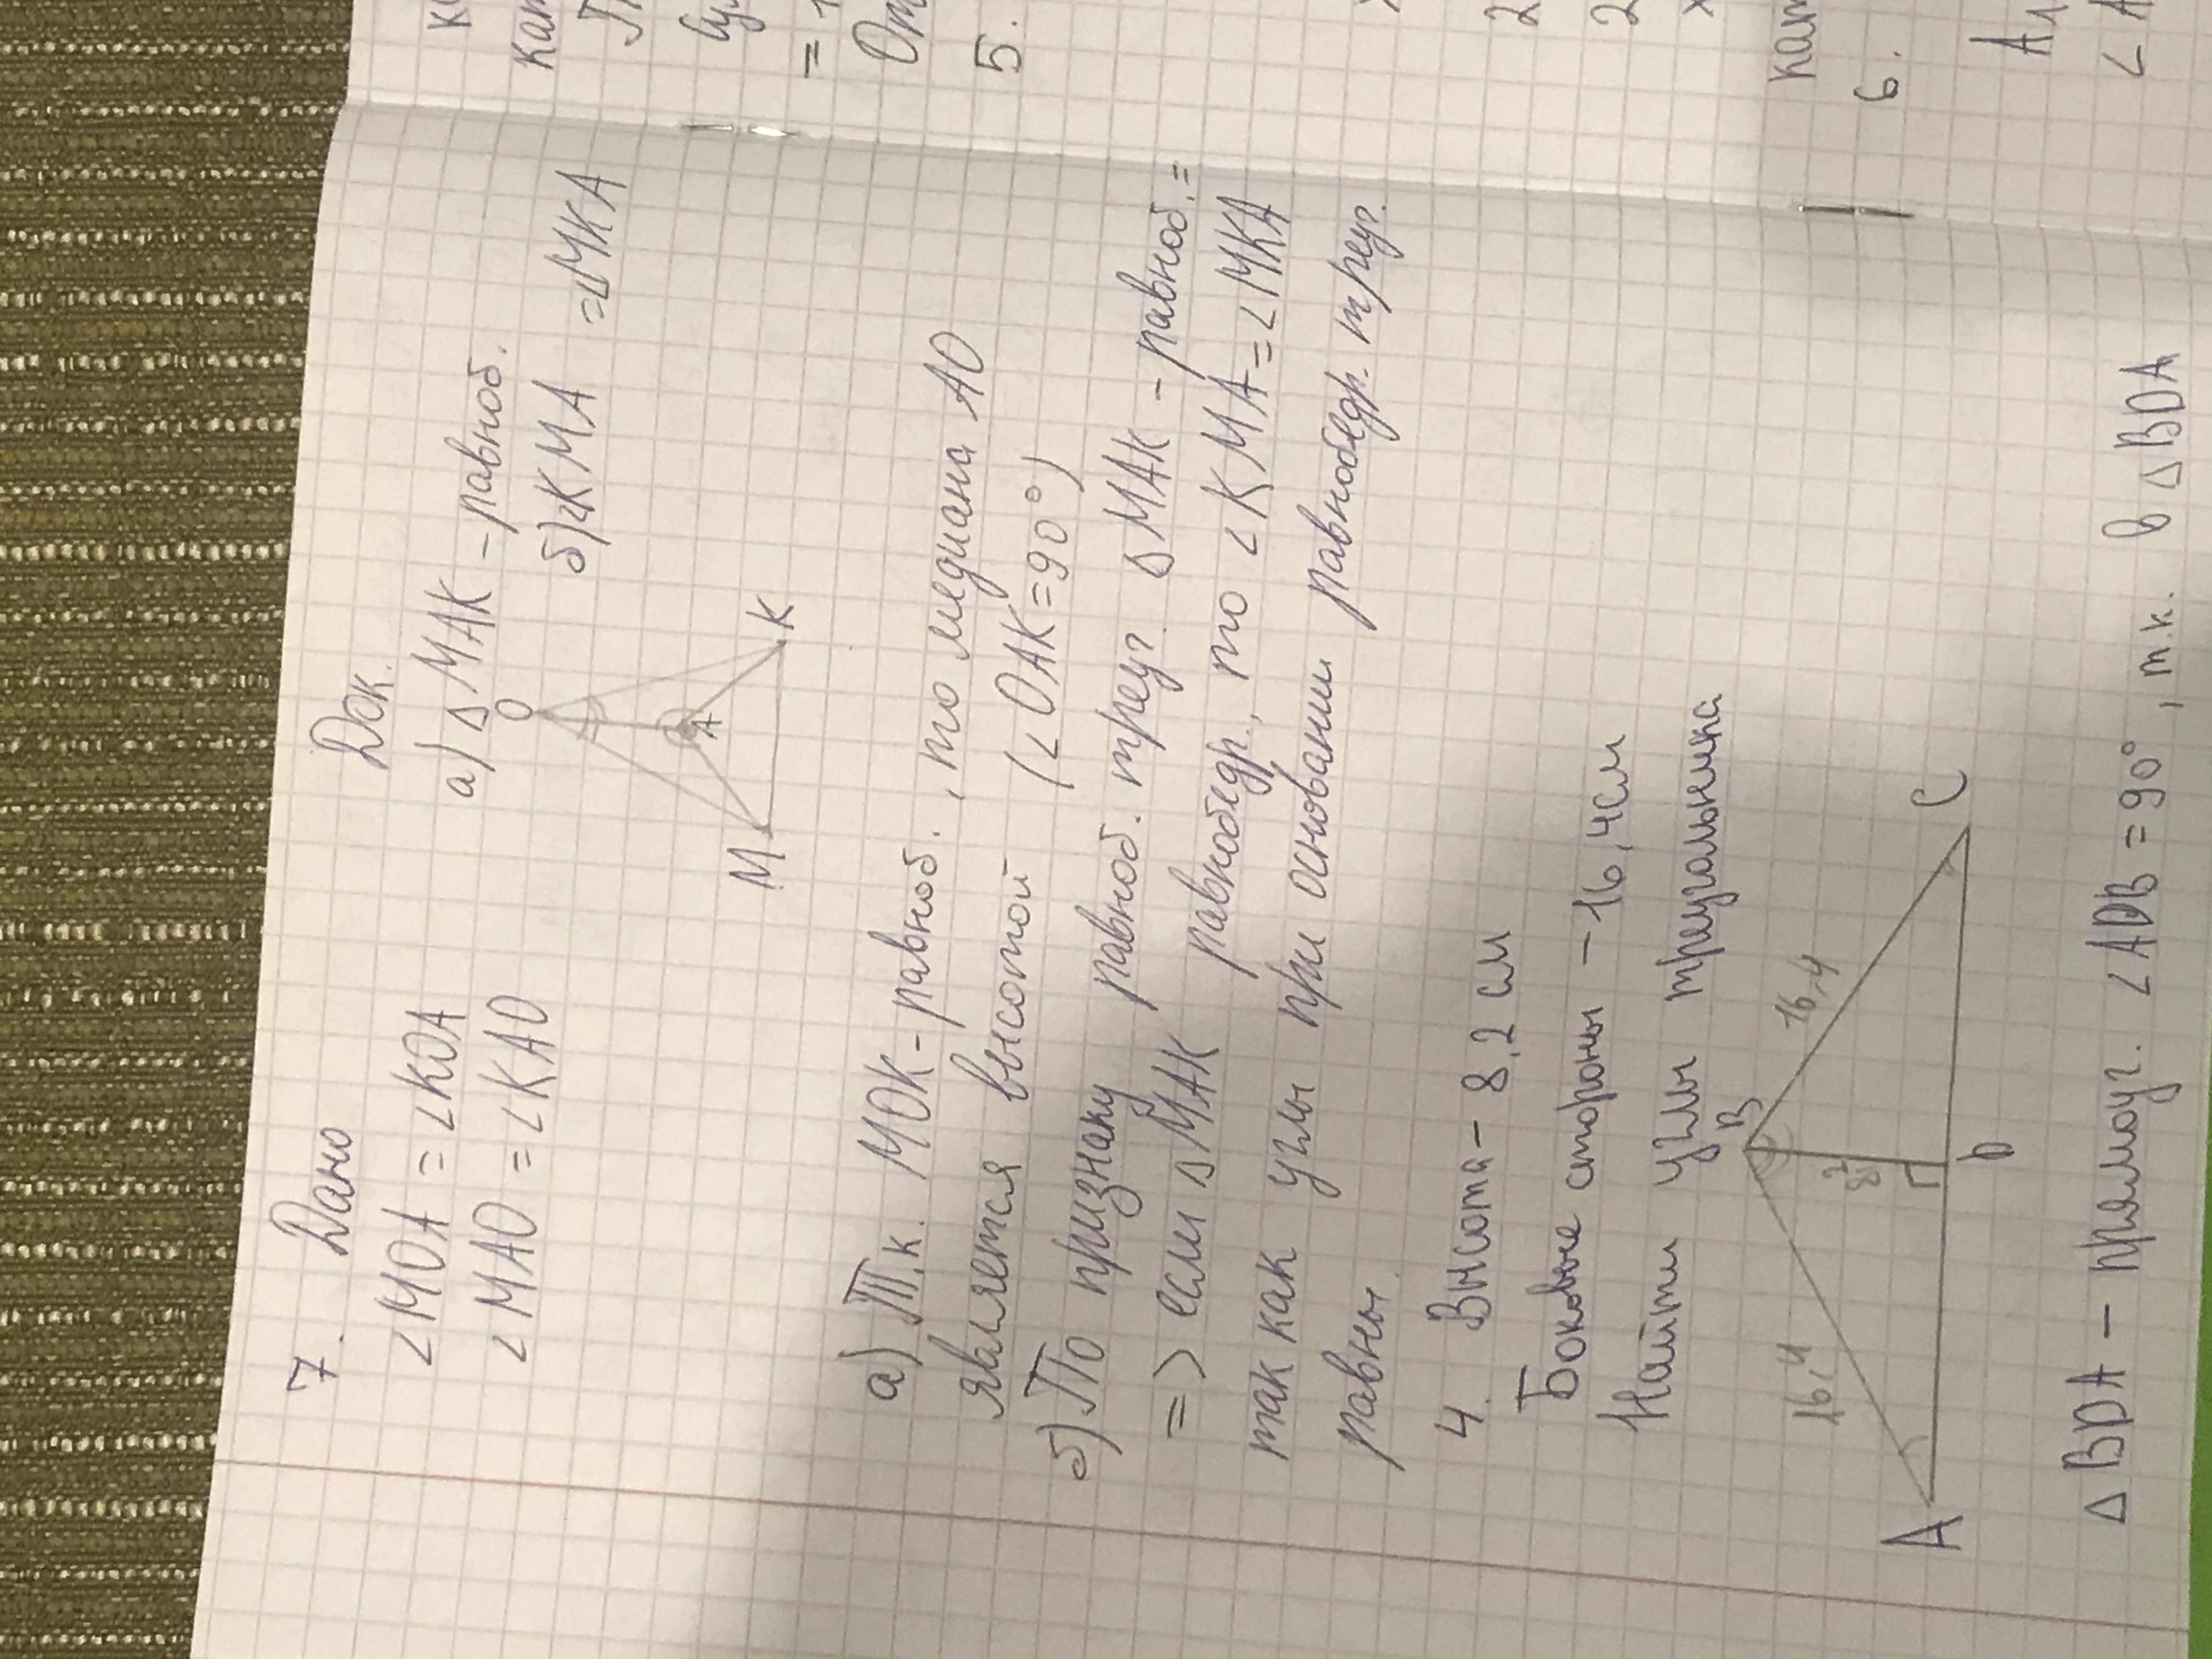 7. Дано
Док.
∠MOA = ∠KOA
а) △ MAK – равноб.
∠MAO = ∠KAO
б) ∠KMA = ∠MKA
O
A
M
K
а) Т.к. MOK – равноб. , то медиана AO
является высотой (∠OAK = 90°)
б) По признаку равноб. треуг. △MAK – равноб. =
=> если △MAK равнобедр., то ∠KMA = ∠MKA
так как углы при основании равнобедр. треуг.
равны.
4. Высота – 8,2 см
Боковые стороны – 16,4см
Найти углы треугольника
B
16,4
16,4
8,2
A
D
C
△ BDA – прямоуг. ∠ADB = 90°, т.к. в △ BDA
кат
=
От
5.
2
2
кат
6.
∠ A